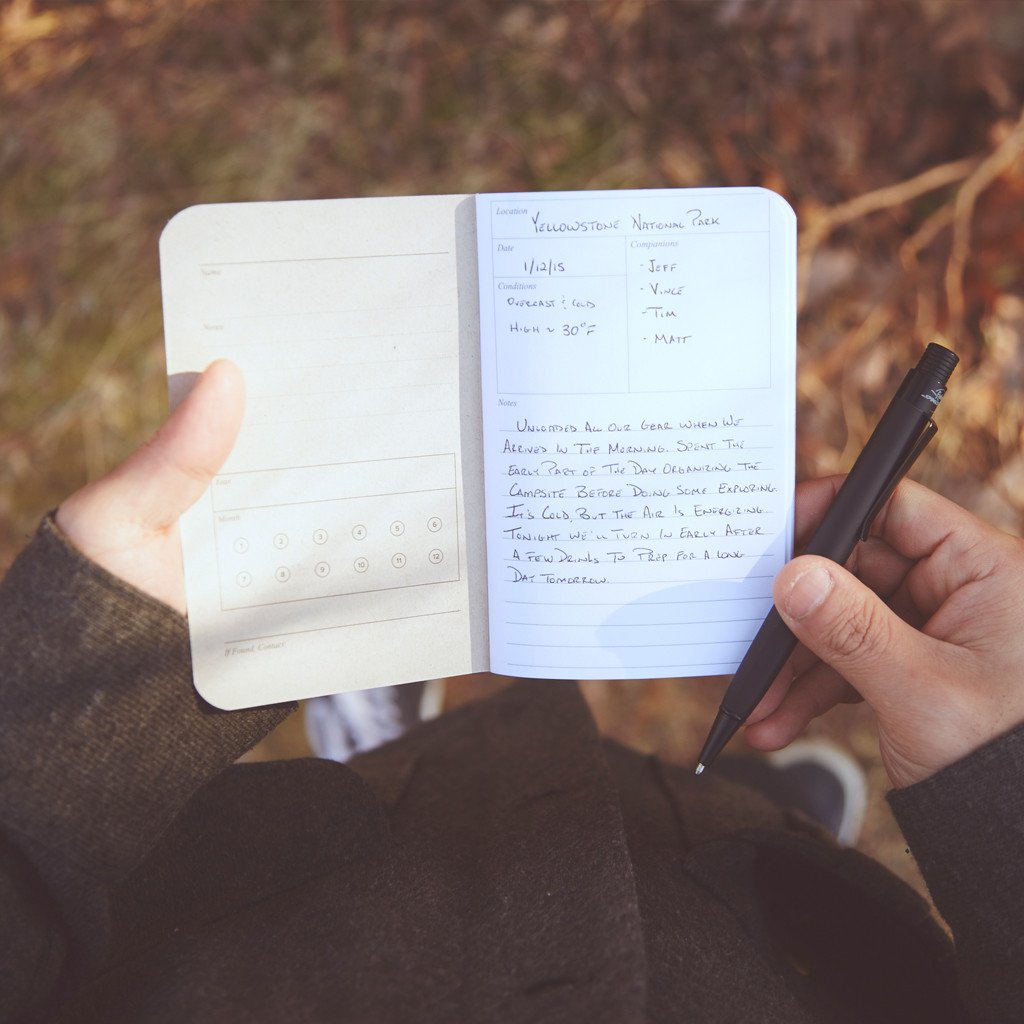 Name
Notes
Year
Month
1 2 3 4 5 6
7 8 9 10 11 12
If Found, Contact:
Location
YELLOWSTONE NATIONAL PARK
Date
1/12/15
Conditions
OVERCAST & COLD
HIGH ~ 30°F
Companions
- JEFF
- VINCE
- TIM
- MATT
Notes
UNLOADED ALL OUR GEAR WHEN WE
ARRIVED IN THE MORNING. SPENT THE
EARLY PART OF THE DAY ORGANIZING THE
CAMPSITE BEFORE DOING SOME EXPLORING.
IT'S COLD, BUT THE AIR IS ENERGIZING.
TONIGHT WE'LL TURN IN EARLY AFTER
A FEW DRINKS TO PREP FOR A LONG
DAY TOMORROW.